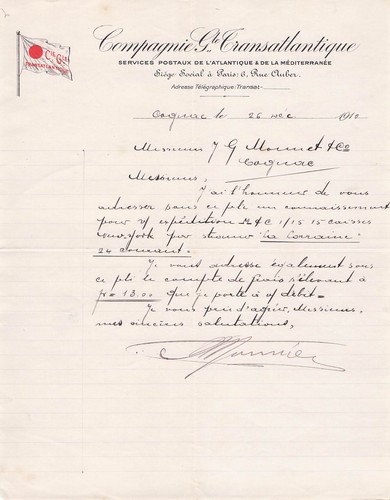 Cie Gle
TRANSATLANTIQUE
Compagnie Gle Transatlantique
SERVICES POSTAUX DE L'ATLANTIQUE & DE LA MÉDITERRANÉE
Siège Social à Paris: 6, Rue Auber.
Adresse Télégraphique: Transat-
Cognac le 26 Déc. 1910
Messieurs J G Monnet & Co
Cognac
Messieurs,
J'ai l'honneur de vous
adresser sous ce pli un connaissement
pour v/ expédition M & C 1/15 15 caisses
New York par steamer "La Lorraine"
24 courant.
Je vous adresse également sous
ce pli le compte de frais s'élevant à
frs 13.00 que je porte à v/ débit.
Je vous prie d'agréer, Messieurs,
mes sincères salutations,